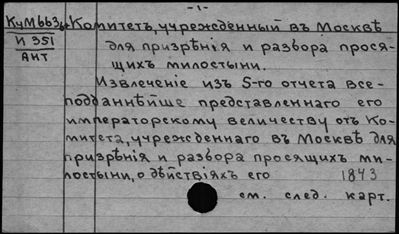 -1-
КуМ663б Комитетъ, учрежденный въ Москвѣ
И 351 для призрѣнія и разбора прося-
АНТ щихъ милостыни.
Извлеченіе изъ 5-го отчета все-
подданнѣйше представленнаго его
императорскому величеству отъ Ко-
митета, учрежденнаго въ Москвѣ для
призрѣнія и разбора просящихъ ми-
лостыни, о дѣйствіяхъ его 1843
см. след. карт.